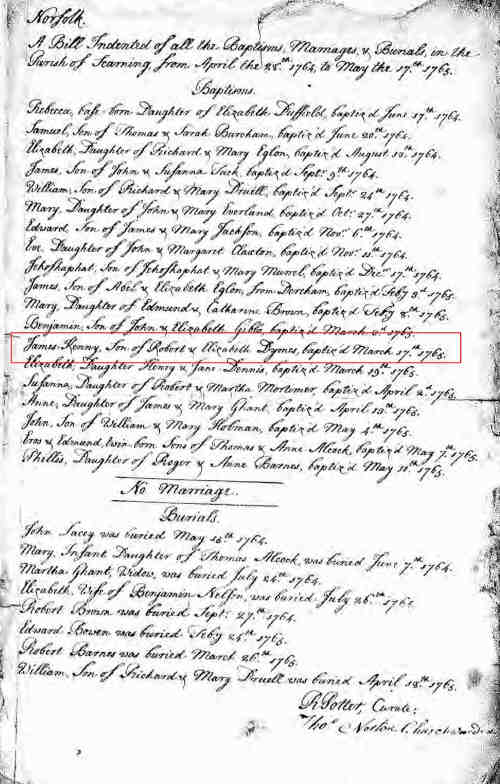 Norfolk.
A Bill Indented of all the Baptisms, Marriages, & Burials, in the
Parish of Scarning, from April the 28.th 1764, to May the 17.th 1765.
Baptisms.
Rebecca, base-born Daughter of Elizabeth Duffeld, baptiz'd June 17.th 1764.
Samuel, Son of Thomas & Sarah Burcham, baptiz'd June 20.th 1764.
Elizabeth, Daughter of Richard & Mary Eglon, baptiz'd August 10.th 1764.
James, Son of John & Susanna Tuck, baptiz'd Sept.r 9.th 1764.
William, Son of Richard & Mary Druell, baptiz'd Sept.r 24.th 1764.
Mary, Daughter of John & Mary Everland, baptiz'd Oct.r 27.th 1764.
Edward, Son of James & Mary Jackson, baptiz'd Nov.r 6.th 1764.
Eve, Daughter of John & Margaret Claxton, baptiz'd Nov.r 11.th 1764.
Jehoshaphat, Son of Jehoshaphat & Mary Murrel, baptiz'd Dec.r 17.th 1764.
James, Son of Noel & Elizabeth Eglon, from Dereham, baptiz'd Feb.y 3.d 1765.
Mary, Daughter of Edmund & Catharine Brown, baptiz'd Feb.y 8.th 1765.
Benjamin, Son of John & Elizabeth Gibbs, baptiz'd March 1765.
James-Kenny, Son of Robert & Elizabeth Dynes, baptiz'd March 17.th 1765.
Elizabeth, Daughter Henry & Jane Dennis, baptiz'd March 19.th 1765.
Susanna, Daughter of Robert & Martha Mortimer, baptiz'd April 2.d 1765.
Anne, Daughter of James & Mary Ghant, baptiz'd April 13.th 1765.
John, Son of William & Mary Hobman, baptiz'd May 4.th 1765.
Eras & Edmund, twin-born Sons of Thomas & Anne Alcock, baptiz'd May 7.th 1765.
Phillis, Daughter of Roger & Anne Barnes, baptiz'd May 11.th 1765.
No Marriage.
Burials.
John Lacey was buried May 16.th 1764.
Mary, Infant Daughter of Thomas Alcock, was buried June 7.th 1764.
Martha Ghant, Widow, was buried July 24.th 1764.
Elizabeth, Wife of Benjamin Nelson, was buried July 26.th 1764
Robert Brown was buried Sept.r 27.th 1764.
Edward Bowen was buried Feb.y 25.th 1765.
Robert Barnes was buried March 26.th 1765.
William, Son of Richard & Mary Druell was buried April 18.th 1765.
R Potter, Curate.
Tho.s Norton Churchwarden